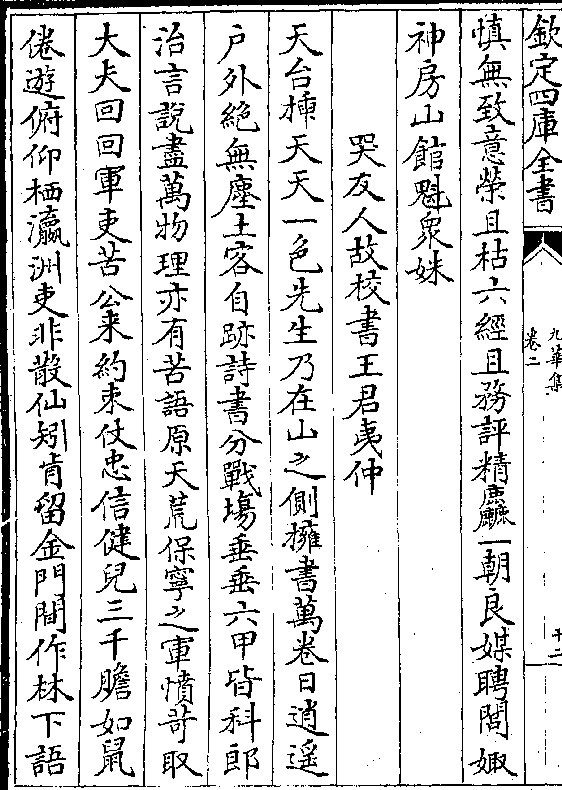 欽定四庫全書
九華集
卷二
十二
慎無致意榮且枯六經且務評精麤一朝良媒聘閭娵
神房山館魁衆姝
哭友人故校書王君夷仲
天台橫天天一色先生乃在山之側擁書萬卷日逍遥
户外絶無塵土客自跡詩書分戰塲垂垂六甲皆科郎
治言說盡萬物理亦有苦語原天荒保寧之軍憤苛取
大夫回回軍吏苦公来約束仗忠信健兒三千膽如鼠
倦遊俯仰栖瀛洲吏非散仙矧肯留金門閶作林下語